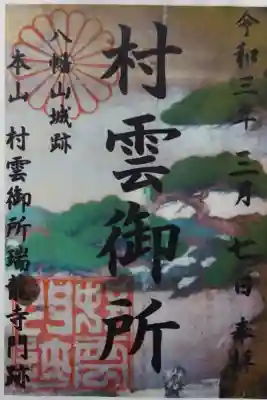 令和三年三月七日奉拝
村雲御所
八幡山城跡
本山 村雲御所瑞龍寺門跡